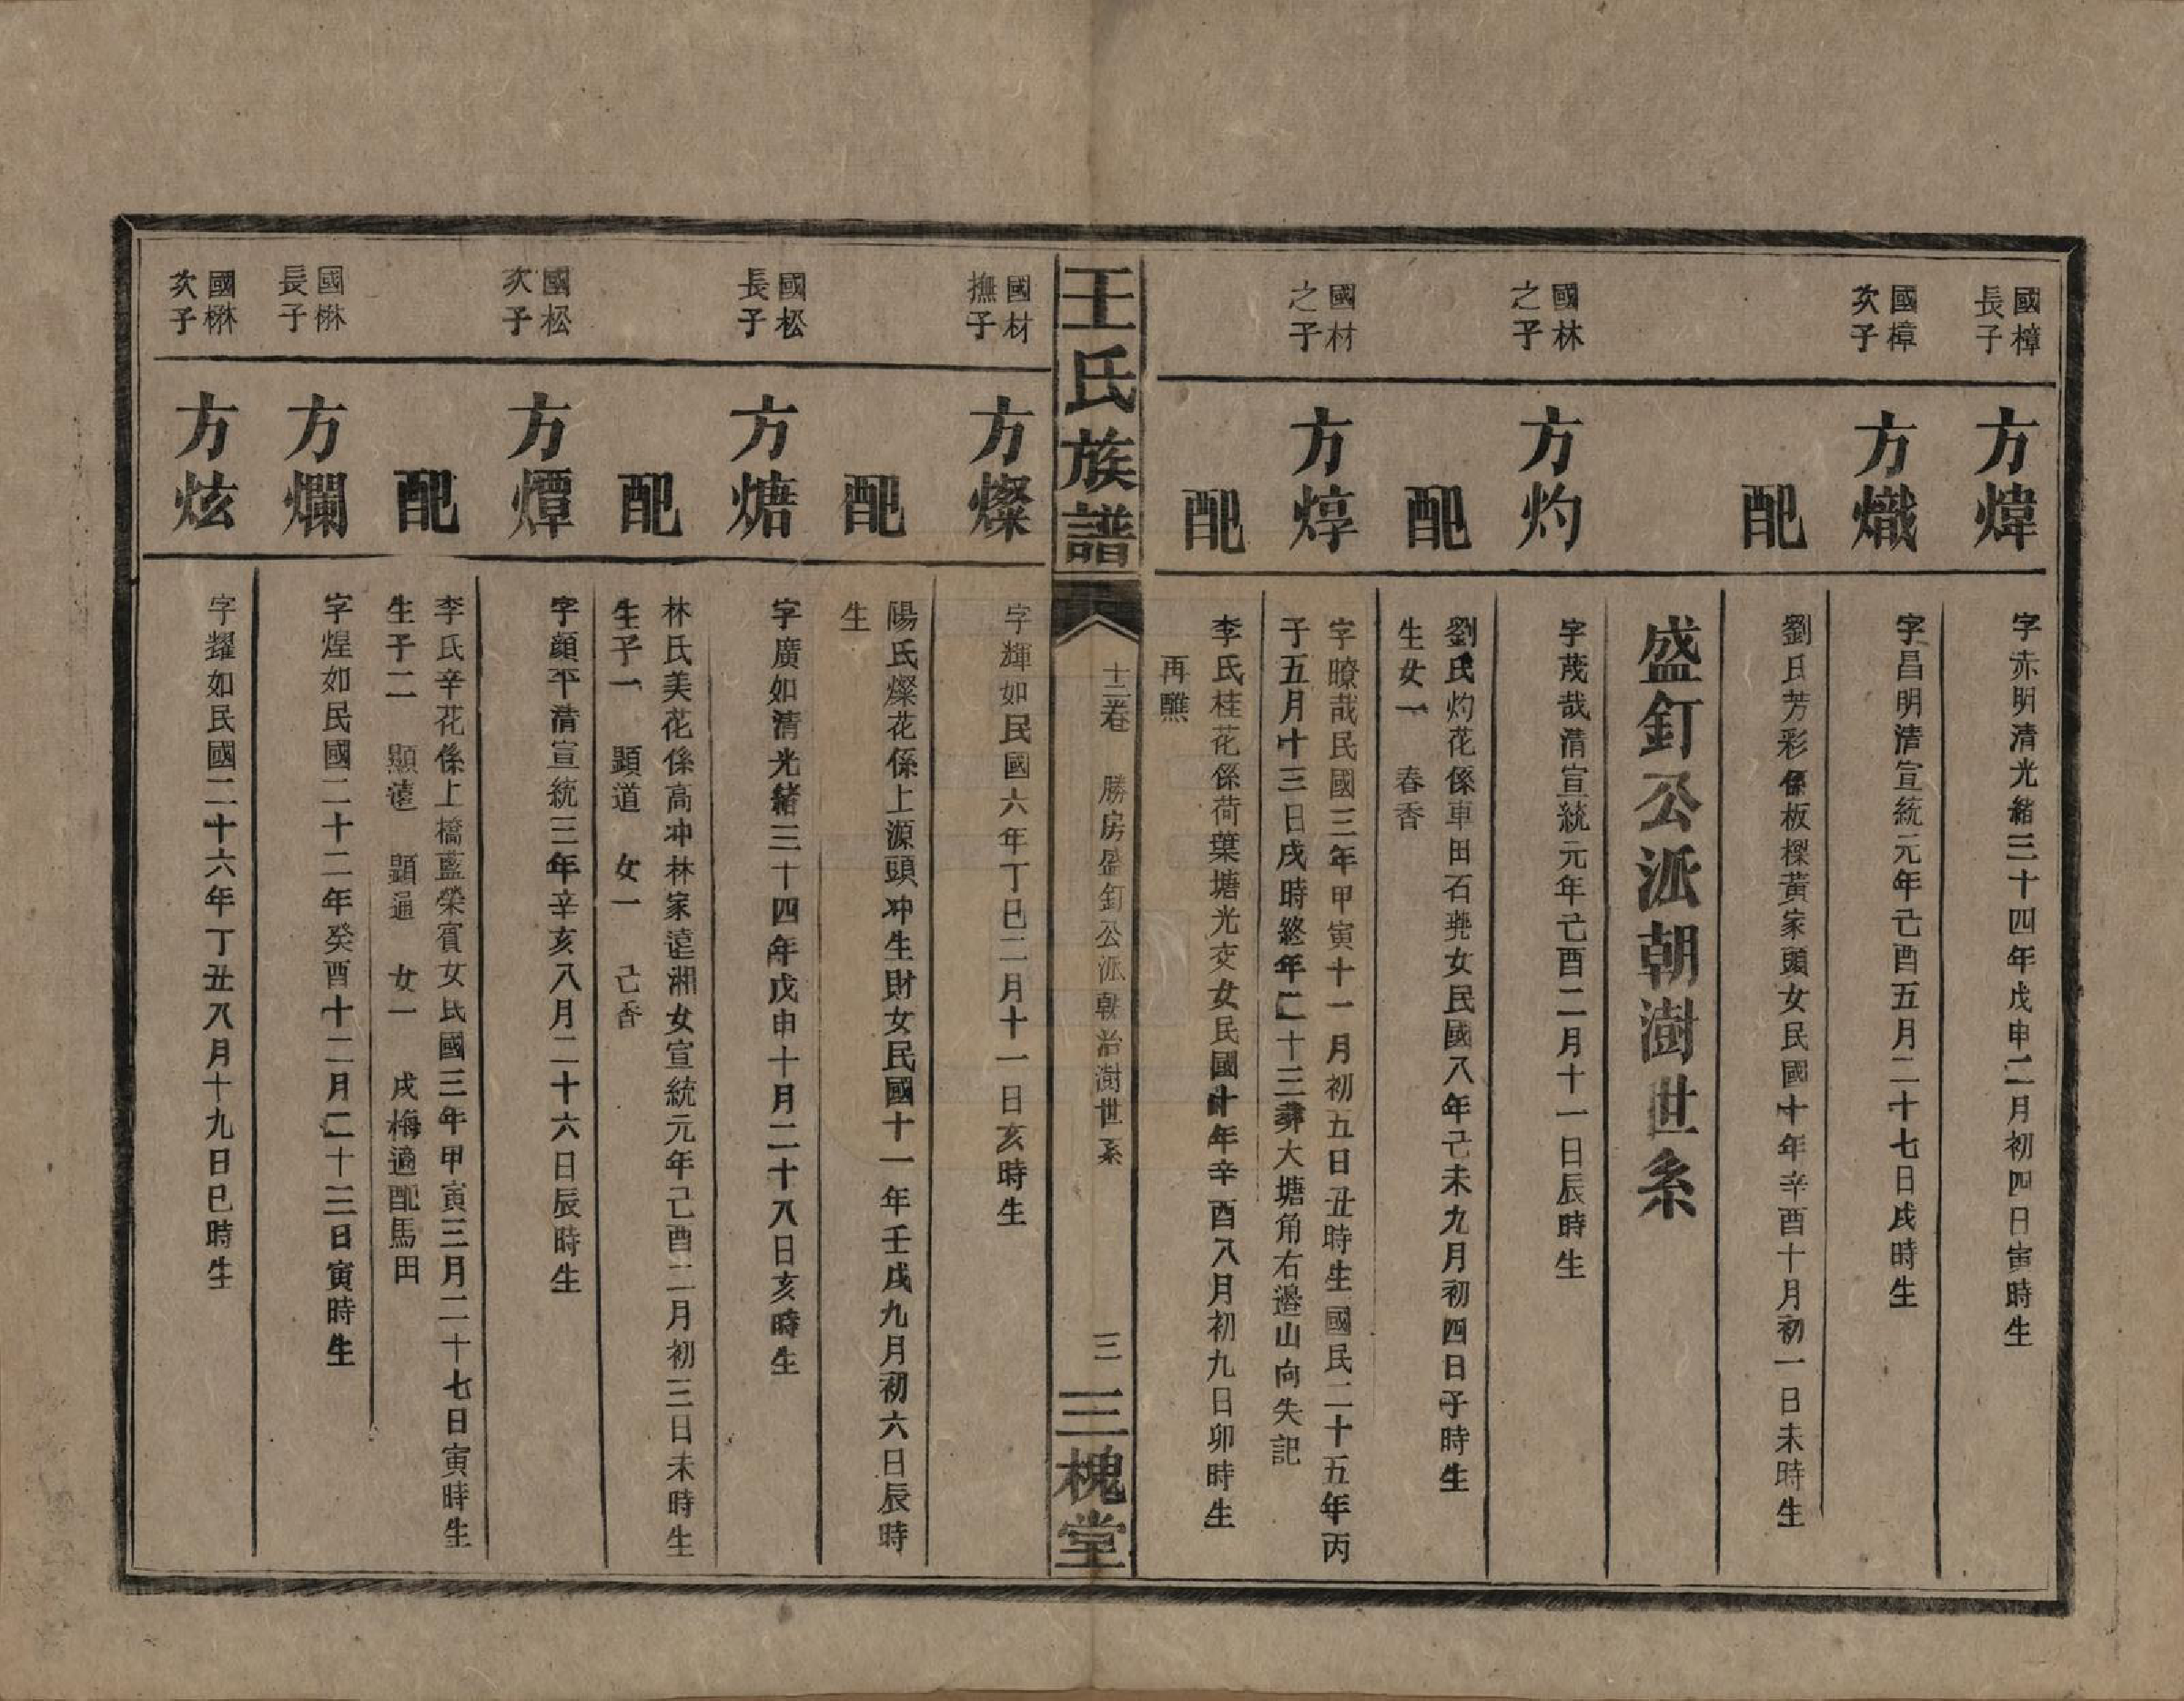 國樟
長子
方煒
字赤明清光緒三十四年戊申二月初四日寅時生
國樟
次子
方熾
字昌明清宣統元年己酉五月二十七日戌時生
配
劉氏芳彩係板樑黃家頭女民國十年辛酉十月初一日未時生
盛釘公派朝澍世系
國林
之子
方灼
字茂哉清宣統元年己酉二月十一日辰時生
配
劉氏灼花係車田石堯女民國八年己未九月初四日子時生
生女一 春香
國材
之子
方焞
字暸哉民國三年甲寅十一月初五日丑時生國民二十五年丙
子五月十三日戌時終年二十三葬大塘角右邊山向失記
配
李氏桂花係荷葉塘光交女民國十年辛酉八月初九日卯時生
再醮
王氏族譜
十二卷 勝房盛釘公派朝治澍世系
三
三槐堂
國材
撫子
方燦
字輝如民國六年丁巳二月十一日亥時生
配
陽氏燦花係上源頭冲生財女民國十一年壬戌九月初六日辰時
生
國松
長子
方煻
字廣如清光緒三十四年戊申十月二十八日亥時生
配
林氏美花係高冲林家遠湘女宣統元年己酉二月初三日未時生
生子一 顕道 女一 己香
國松
次子
方燂
字顏平清宣統三年辛亥八月二十六日辰時生
配
李氏辛花係上橋藍榮賓女民國三年甲寅三月二十七日寅時生
生子二 顯遠 顕通 女一 戌梅適配馬田
國楙
長子
方爛
字煌如民國二十二年癸酉十二月二十三日寅時生
國楙
次子
方炫
字耀如民國二十六年丁丑八月十九日巳時生